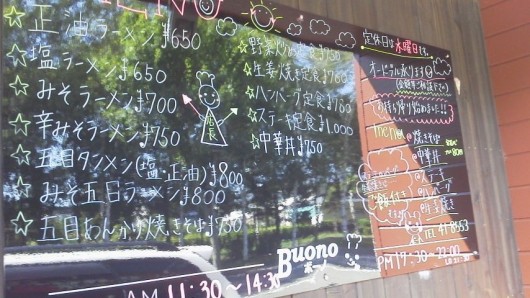 MENU
正油ラーメン ¥650
塩ラーメン ¥650
みそラーメン ¥700
辛みそラーメン ¥750
五目タンメン(塩・正油) ¥800
みそ五目ラーメン ¥800
五目あんかけ焼きそば ¥750
店長
AM 11:30〜14:30
野菜炒め定食 ¥750
生姜焼き定食 ¥760
ハンバーグ定食 ¥760
ステーキ定食 ¥1,000
中華丼 ¥750
Buono
ボーノ
定休日は水曜日です。
オードブル承ります
お持ち帰り始めました!!
menu
焼きそば
中華丼
ステーキ
ハンバーグ
生姜焼き
41-8663
PM 17:30〜22:00